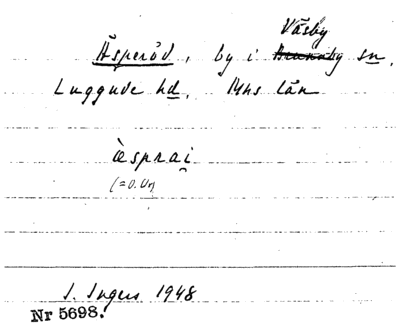 Väsby
Äsperöd, by i Brunnby sn,
Luggude hd. Mhs län
æ̀sprai̯
(= o. Ur)
I. Ingers 1948
Nr 5698.